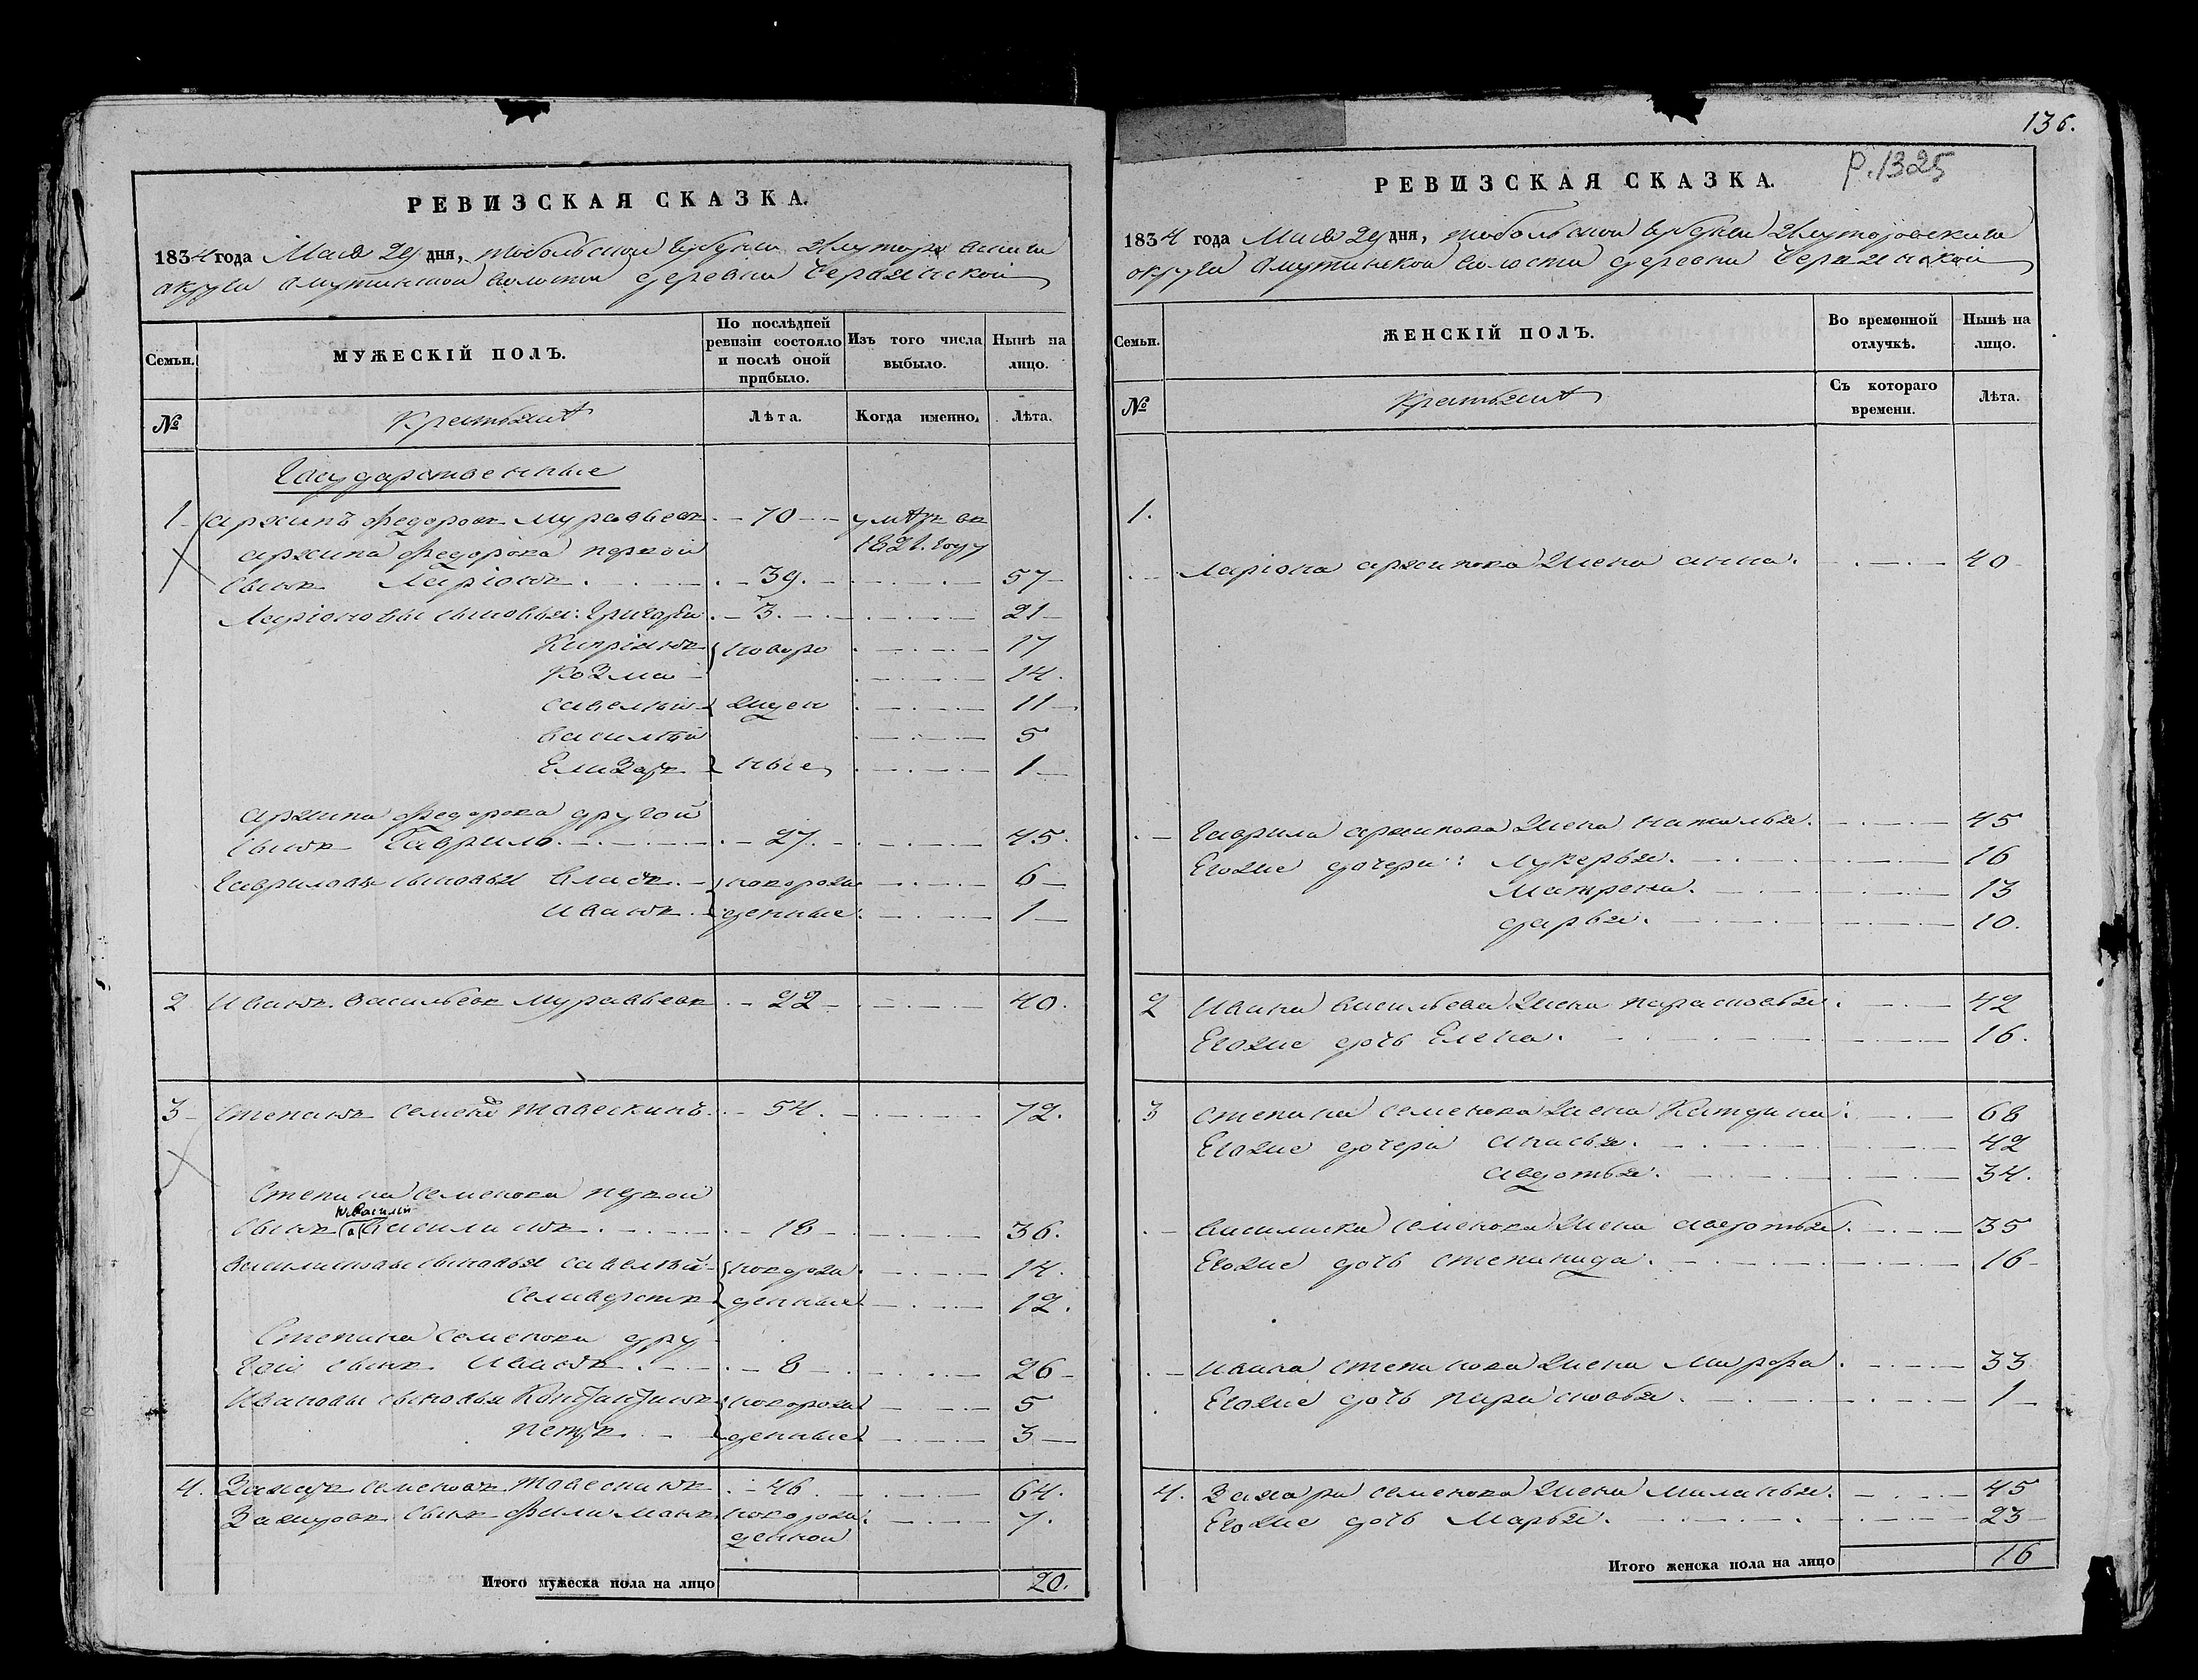 РЕВИЗСКАЯ СКАЗКА.
1834 года Маія 29 дня, Тобольской губерніи Ялуторовскаго
округи Омутинской волости деревни
Семьи. МУЖЕСКІЙ ПОЛЪ. По послѣдней ревизіи состояло и послѣ оной прибыло. Изъ того числа выбыло. Нынѣ на лицо.
№ Крестьянъ Лѣта. Когда именно. Лѣта.
Государственные
1 Архипъ Федоровъ Муравьевъ 70 умеръ въ
Архипа Федорова первой 1821 году
сынъ Ларіонъ 39. 57
Ларіоновы сыновья: Григорей 3. 21
Кипріянъ новоро 17
Козма 14.
Савелей жден 11
Василей 5
Елизаръ ные 1
Архипа Федорова другой
сынъ Гаврило 27. 45.
Гавриловы сыновья Власъ новорож 6
Иванъ денные 1
2 Иванъ Васильевъ Муравьевъ 22 40.
3 Степанъ Семеновъ 54. 72.
Степана Семенова первой
сынъ 18 36.
сыновья Савелей новорож 14.
Селиверстъ денные 12.
Степана Семенова дру
гой сынъ Иванъ 8 26
Ивановы сыновья Константинъ новорож 5
Петръ денные 3
4. Захаръ Семеновъ 46 64.
Захаровъ сынъ Филимонъ новорож 7.
денной
Итого мужеска пола на лицо 20.
136.
р.1325
РЕВИЗСКАЯ СКАЗКА.
1834 года Маія 29 дня, Тобольской губерніи Ялуторовскаго
округи Омутинской волости деревни
Семьи. ЖЕНСКІЙ ПОЛЪ. Во временной отлучкѣ. Нынѣ на лицо.
№ Крестьянъ Съ котораго времени. Лѣта.
1.
Ларіона Архипова жена Анна. 40
Гаврила Архипова жена Наталья. 45
Егоже дочери: Лукерья. 16
Матрена. 13
Дарья. 10.
2 Ивана Васильева жена Парасковья. 42
Егоже дочь Елена. 16.
3 Степана Семенова жена 68
Егоже дочери 42
Авдотья. 34.
жена Авдотья. 35
Егоже дочь Степанида. 16
Ивана Степанова жена Марфа. 33
Егоже дочь Парасковья. 1
4. Захара Семенова жена Маланья. 45
Егоже дочь Марья. 23
Итого женска пола на лицо 16